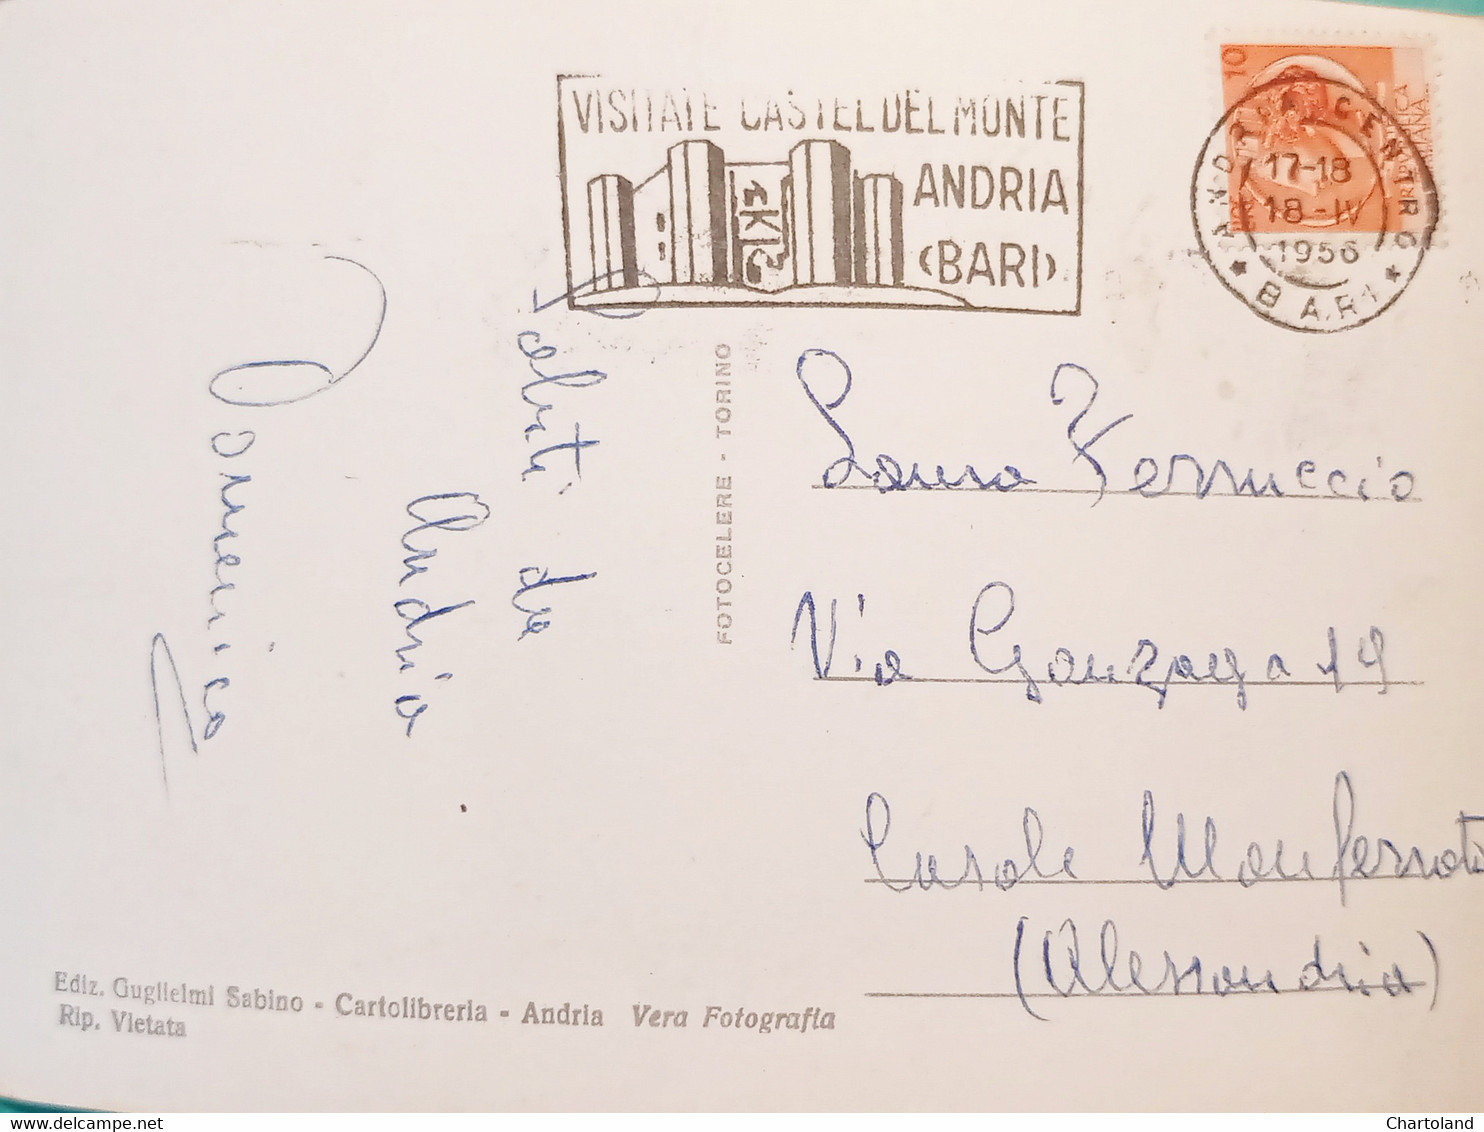 VISITATE CASTEL DEL MONTE
ANDRIA
(BARI)
10
ANDRIA CENTRO
17-18
18-IV
1956
* BARI *
Saluti da
Andria
Domenico
FOTOCELERE - TORINO
Laura Ferruccio
Via Gonzaga 19
Casale Monferrato
(Alessandria)
Ediz. Guglielmi Sabino - Cartolibreria - Andria Vera Fotografia
Rip. Vietata
delcampe.net
Chartoland